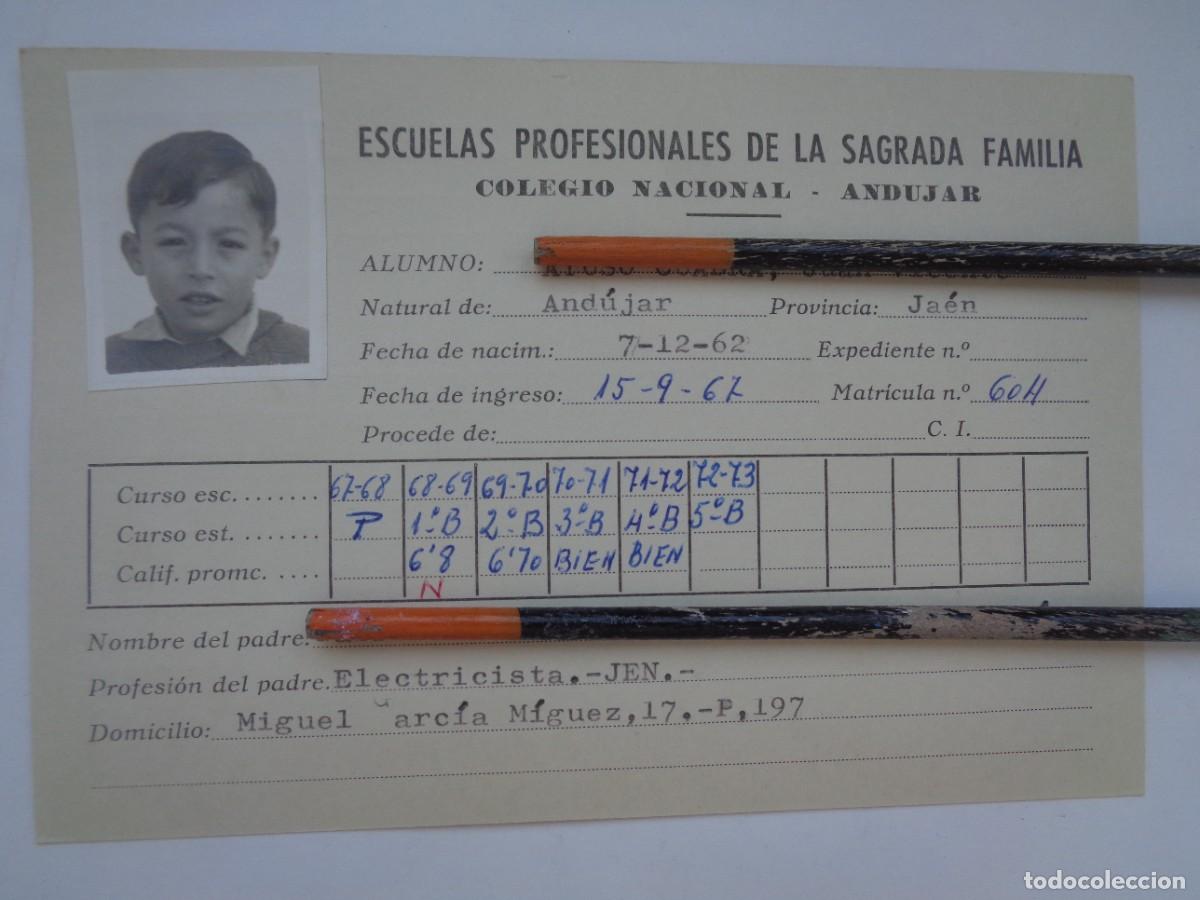 ESCUELAS PROFESIONALES DE LA SAGRADA FAMILIA
COLEGIO NACIONAL - ANDUJAR
ALUMNO:
Natural de: Andújar Provincia: Jaén
Fecha de nacim.: 7-12-62 Expediente n.º
Fecha de ingreso: 15-9-67 Matrícula n.º 604
Procede de: C. I.
Curso esc. 67-68 68-69 69-70 70-71 71-72 72-73
Curso est. P 1º B 2º B 3º B 4º B 5º B
Calif. promc. 6'8 6'70 BIEN BIEN
N
Nombre del padre.
Profesión del padre. Electricista.-JEN.-
Domicilio: Miguel García Míguez,17.-P,197
todocoleccion